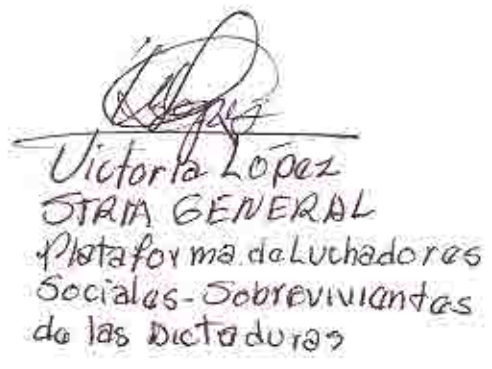 Victoria López
STRIA GENERAL
Plataforma de Luchadores
Sociales-Sobrevivientes
de las Dictaduras